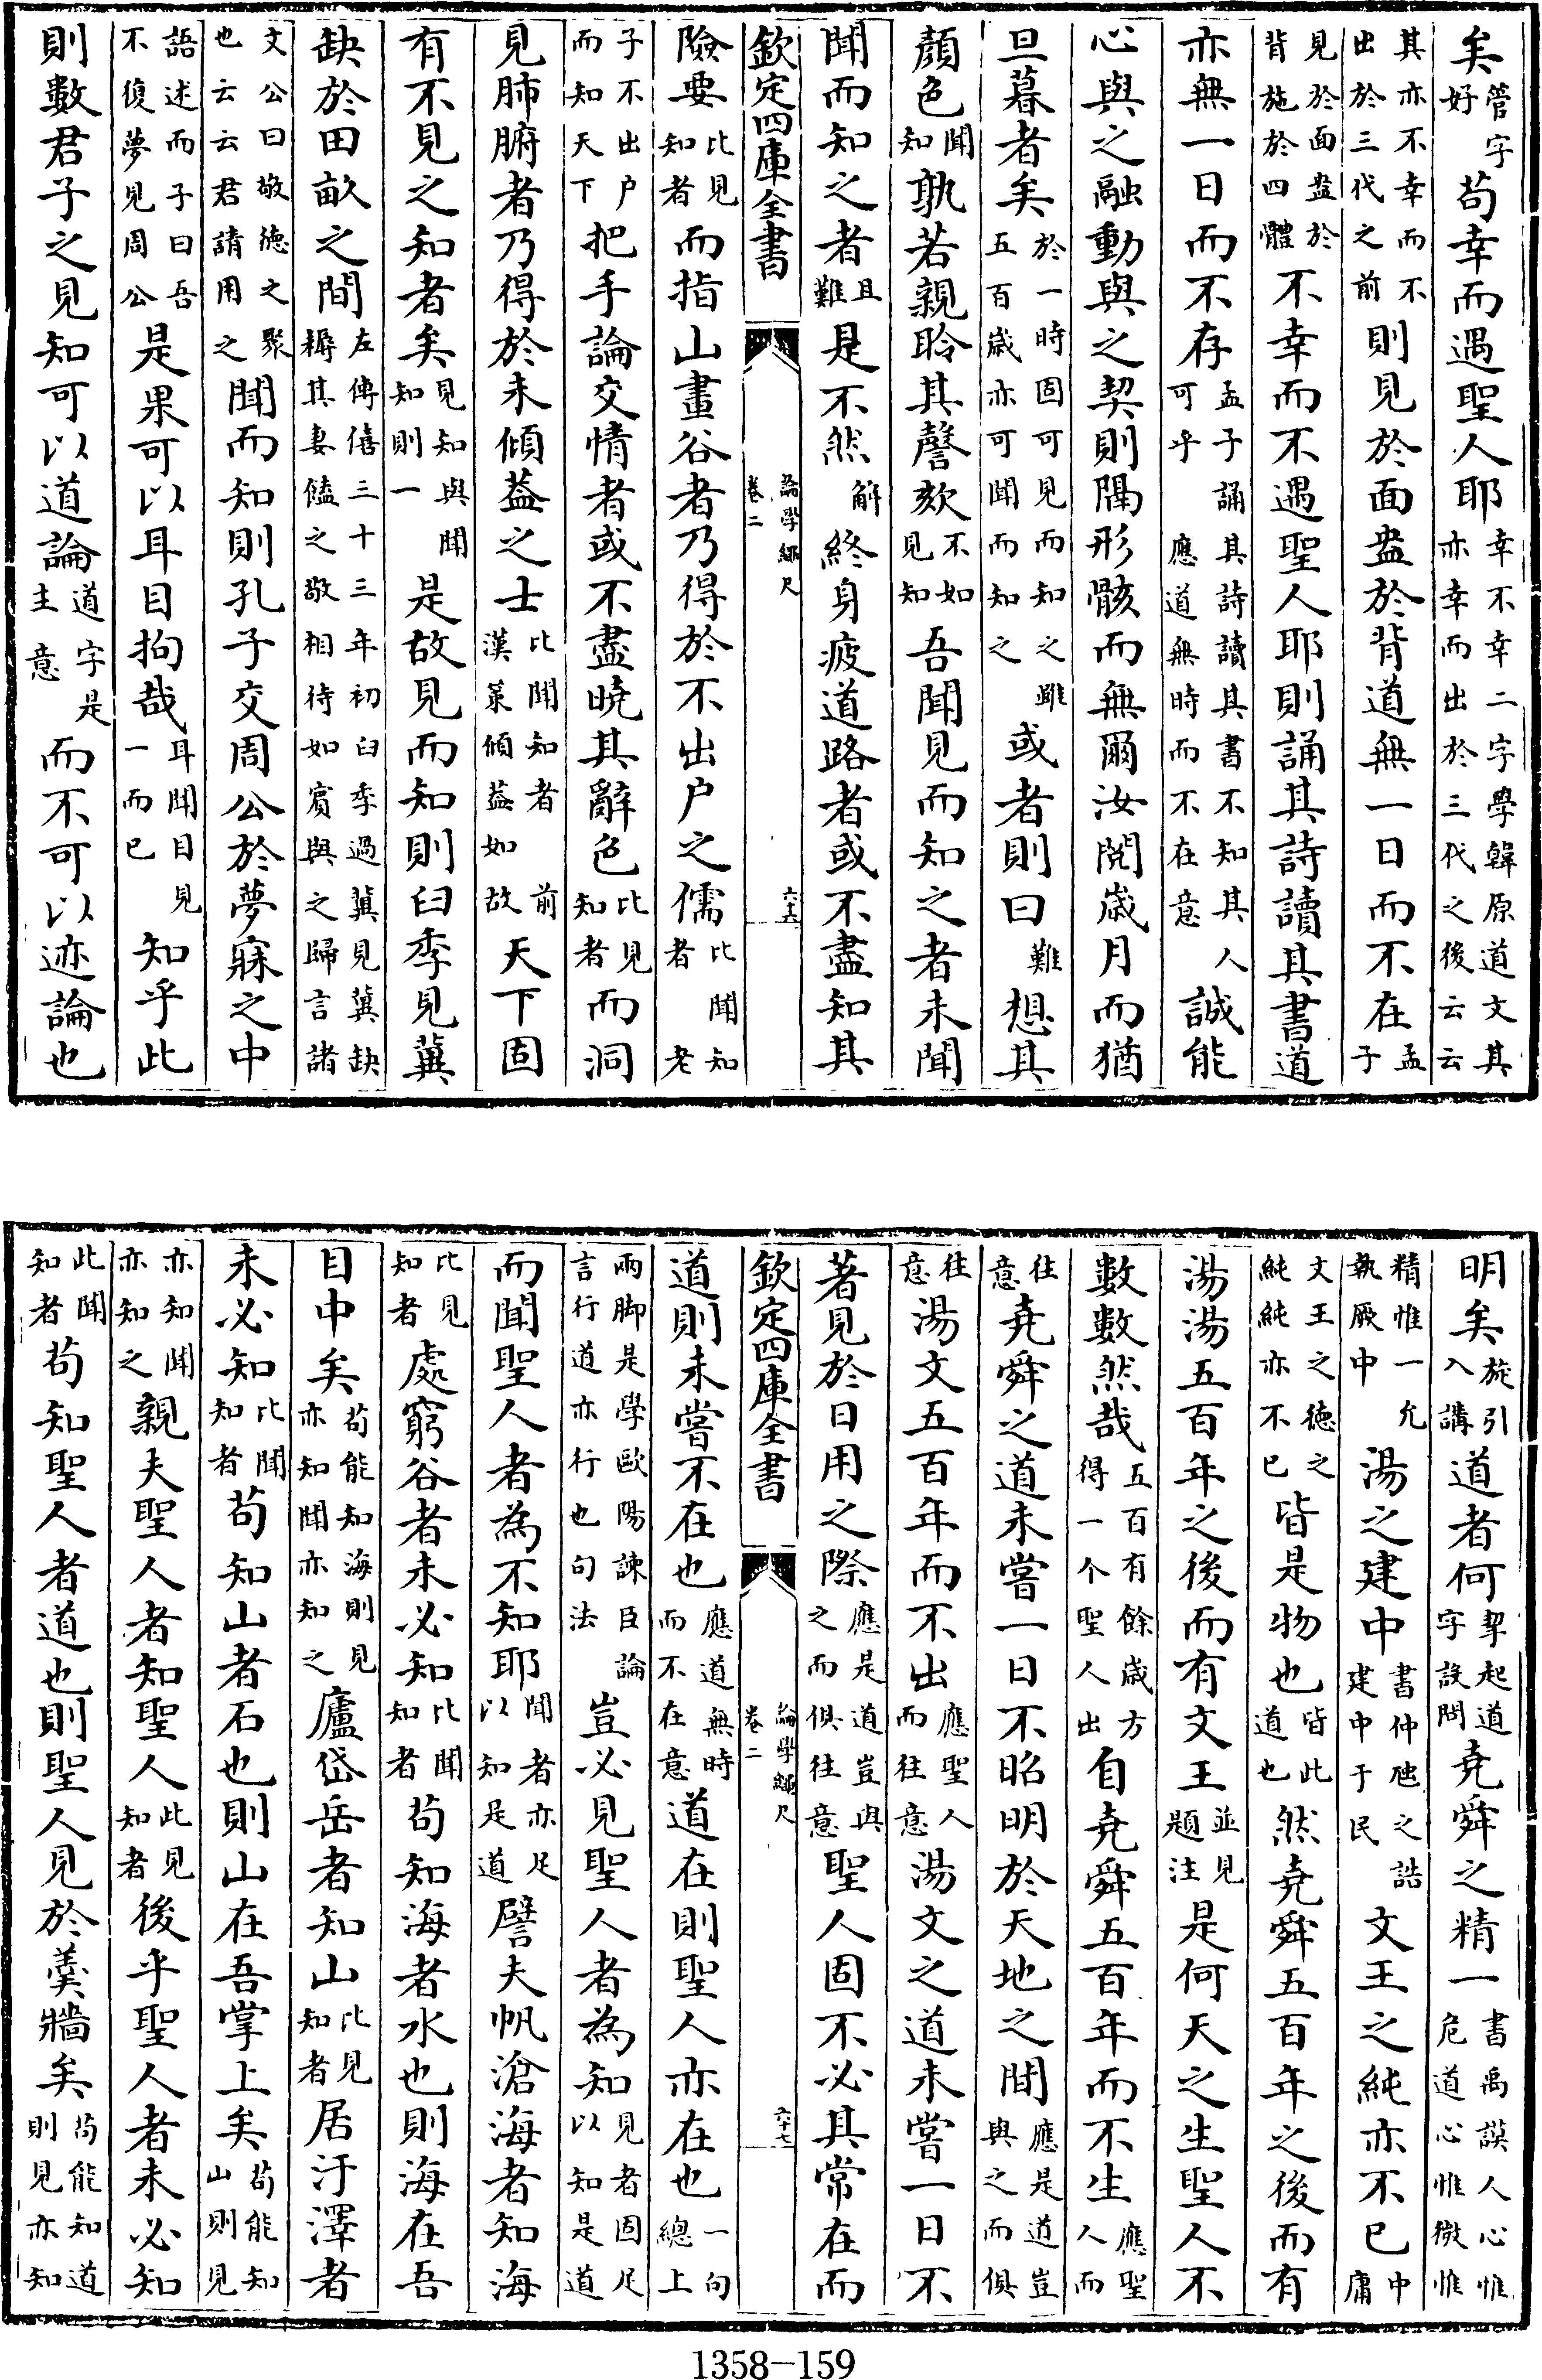 矣管字好苟幸而遇聖人耶幸不幸二字學韓原道文其亦幸而出於三代之後云云
其亦不幸而不出於三代之前則見於面盎於背道無一日而不在孟子
見於面盎於背施於四體不幸而不遇聖人耶則誦其詩讀其書道
亦無一日而不存孟子誦其詩讀其書不知其人可乎應道無時而不在意誠能
心與之融動與之契則隔形骸而無爾汝閱歲月而猶
旦暮者矣於一時固可見而知之雖五百歲亦可聞而知之或者則曰難想其
顔色聞知孰若親聆其謦欬不如見知吾聞見而知之者未聞
聞而知之者且難是不然解終身疲道路者或不盡知其
欽定四庫全書 論學繩尺 卷二 六十六
險要比見知者而指山畫谷者乃得於不出户之儒比聞知者老
子不出户而知天下把手論交情者或不盡曉其辭色比見知者而洞
見肺腑者乃得於未傾葢之士比聞知者前漢策傾葢如故天下固
有不見之知者矣見知與聞知則一是故見而知則臼季見冀
缺於田畝之間左傳僖三十三年初臼季過冀見冀缺耨其妻饁之敬相待如賓與之歸言諸
文公曰敬德之聚也云云君請用之聞而知則孔子交周公於夢寐之中
語述而子曰吾不復夢見周公是果可以耳目拘哉耳聞目見一而已知乎此
則數君子之見知可以道論道字是主意而不可以迹論也
明矣旋引入講道者何挈起道字設問堯舜之精一書禹謨人心惟危道心惟微惟
精惟一允執厥中湯之建中書仲虺之誥建中于民文王之純亦不已中庸
文王之德之純純亦不已皆是物也皆此道也然堯舜五百年之後而有
湯湯五百年之後而有文王並見題注是何天之生聖人不
數數然哉五百有餘歲方得一个聖人出自堯舜五百年而不生應聖人而
往意堯舜之道未嘗一日不昭明於天地之間應是道豈與之而俱
往意湯文五百年而不出應聖人而往意湯文之道未嘗一日不
著見於日用之際應是道豈與之而俱往意聖人固不必其常在而
欽定四庫全書 論學繩尺 卷二 六十七
道則未嘗不在也應道無時而不在意道在則聖人亦在也一句總上
兩脚是學歐陽諫臣論言行道亦行也句法豈必見聖人者為知見者固足以知是道
而聞聖人者為不知耶聞者亦足以知是道譬夫帆滄海者知海
比見知者處窮谷者未必知比聞知者苟知海者水也則海在吾
目中矣苟能知海則見亦知聞亦知之廬岱岳者知山比見知者居汙澤者
未必知比聞知者苟知山者石也則山在吾掌上矣苟能知山則見
亦知聞亦知之親夫聖人者知聖人此見知者後乎聖人者未必知
此聞知者苟知聖人者道也則聖人見於羹牆矣苟能知道則見亦知
1358-159